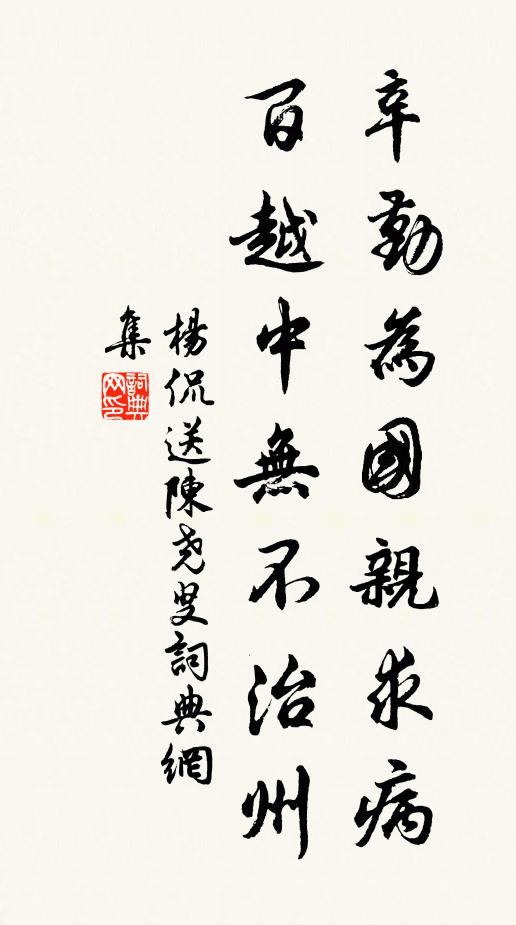 辛勤為國親求病
百越中無不治州
楊侃送陳堯叟詞典網
集
詞典
网印